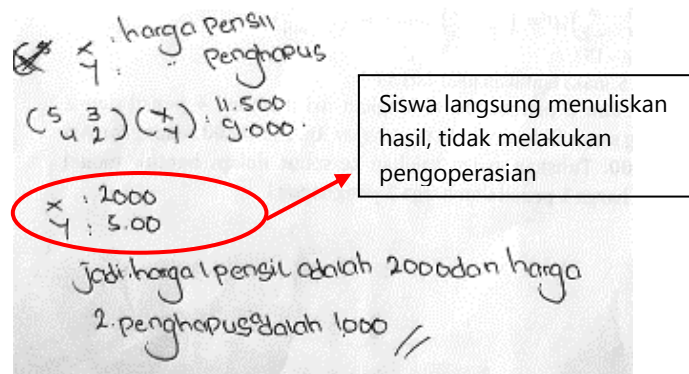 x : harga pensil
y : " Penghapus
(5 3 4 2) (x y) : 11.500 9.000.
x : 2000
y : 5.00
jadi harga 1 pensil adalah 2000 dan harga
2 penghapus adalah 1.000 //
Siswa langsung menuliskan
hasil, tidak melakukan
pengoperasian